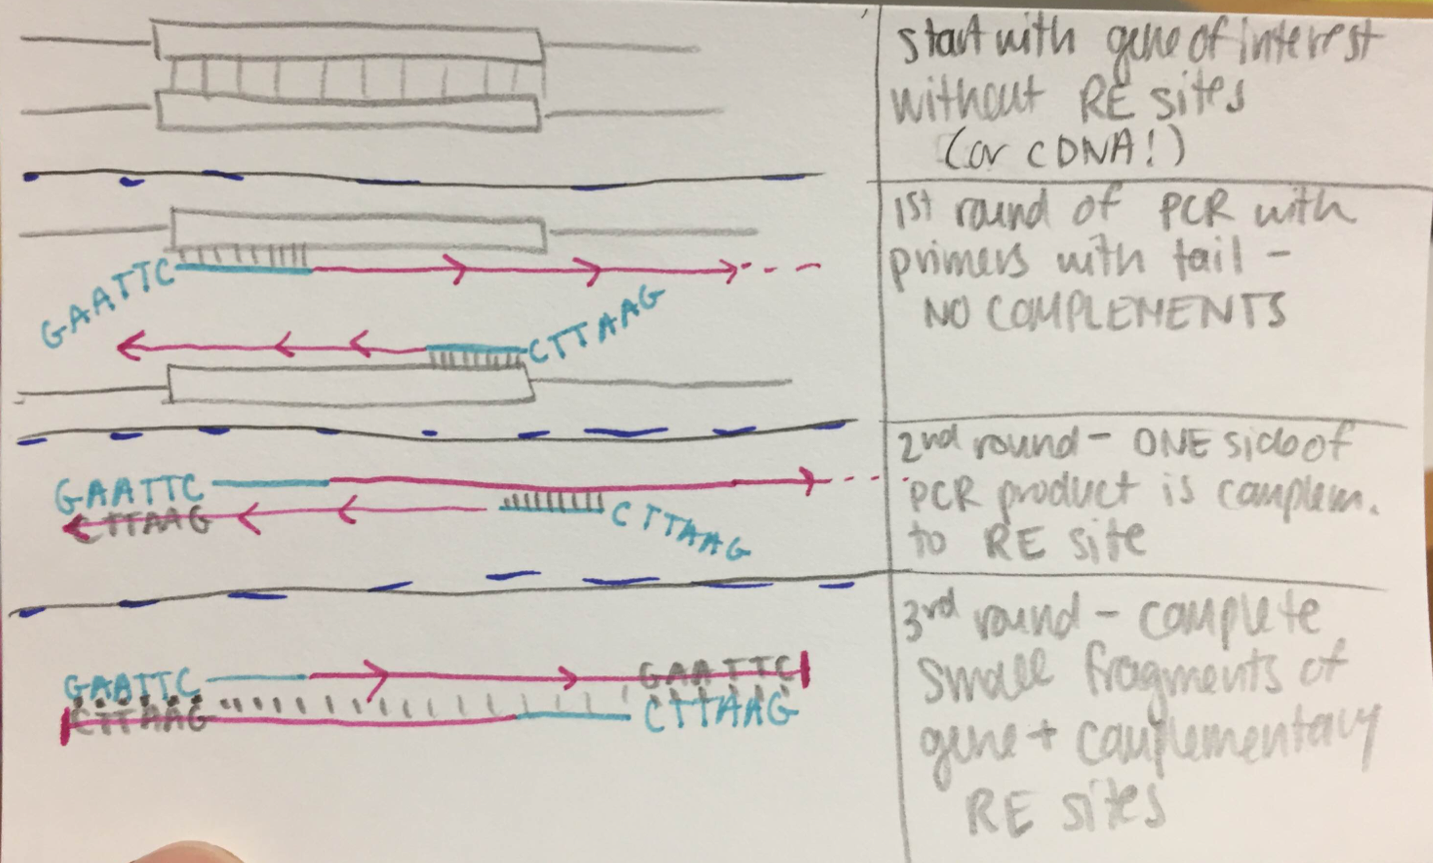 start with gene of interest
without RE sites
(or cDNA!)
1st round of PCR with
primers with tail -
NO COMPLEMENTS
GAATTC
CTTAAG
2nd round - ONE side of
PCR product is complem.
to RE site
GAATTC
CTTAAG
CTTAAG
3rd round - complete
small fragments of
gene + complementary
RE sites
GAATTC GAATTC
CTTAAG CTTAAG